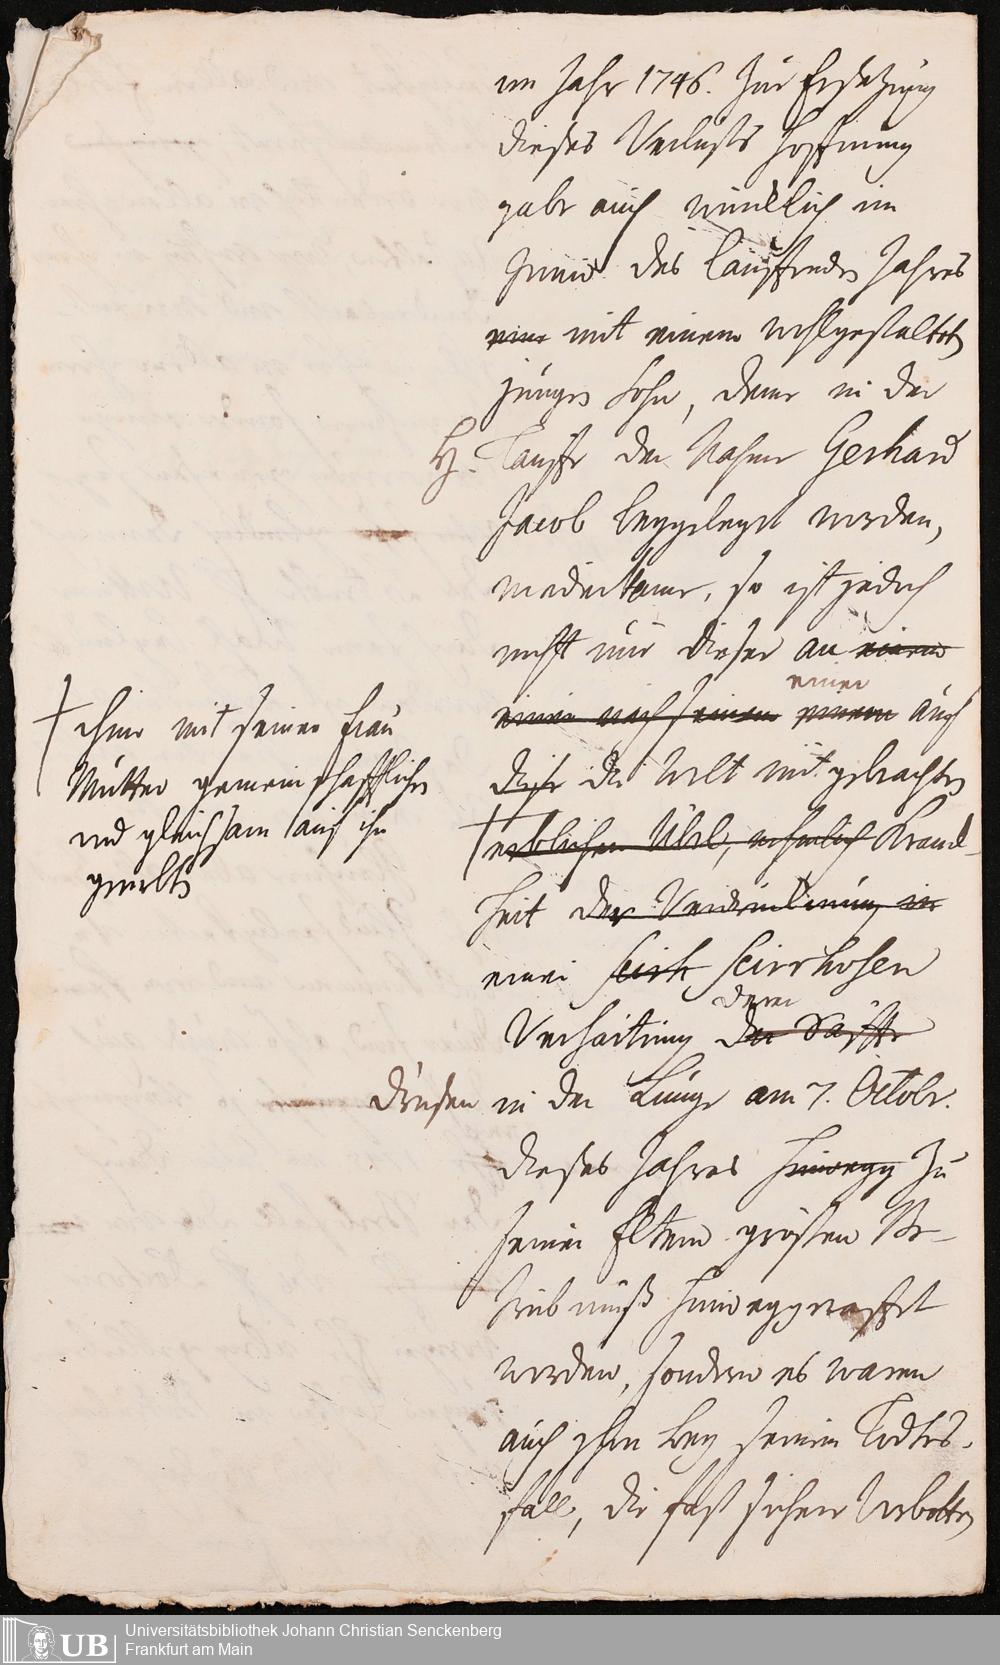 im Jahr 1746. zur Ersetzung
dieses Verlusts Hoffnung
gabe auch würcklich im
Junio des lauffenden Jahres
eine mit einem wohlgestalten
jungen Sohn, deme in der
H. Tauffe der Nahme Gerhard
Jacob beygeleget worden,
niederkame, so ist jedoch
nicht nur dieser an einem
einer
einem nach seinem einem auch
diese die Welt mit gebrachten
† erblichen Übel, nehmlich Kranck-
heit der Verdickung in
einer Scirh Scirrhosen
denen
Verhärtung der Säffte
Drüsen in der Lunge am 7. Octobr.
dieses Jahres hinweg zu
seiner Eltern grösten Be-
trübnuß hinweggerafft
worden, sondern es waren
auch schon bey seinem Todes-
fall, die fast sichere Vorbotten
† ihme mit seiner Frau
Mutter gemeinschafftlichen
und gleichsam auf ihn
geerbten
Universitätsbibliothek Johann Christian Senckenberg
Frankfurt am Main
UB